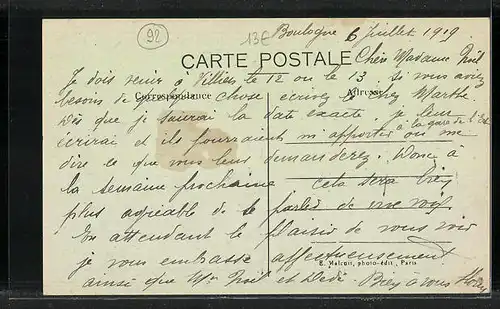 92
13€
Boulogne 6 juillet 1919
CARTE POSTALE
Chère Madame Noël
Je dois venir à Villiers le 12 ou le 13. Si vous aviez
Correspondance
Adresse
besoin de chose écrivez chez Marthe
Dès que je saurai la date exacte je leur
à la gare de l'Est
écrirai et ils pourraient m'apporter ou me
dire ce que vous leur demanderez. Donc à
la semaine prochaine cela sera bien
plus agréable de se parler de vive voix
En attendant le plaisir de vous voir
je vous embrasse affectueusement
E. Malcuit, photo-édit., Paris
ainsi que Mr Noël et Dédé. Bien à vous